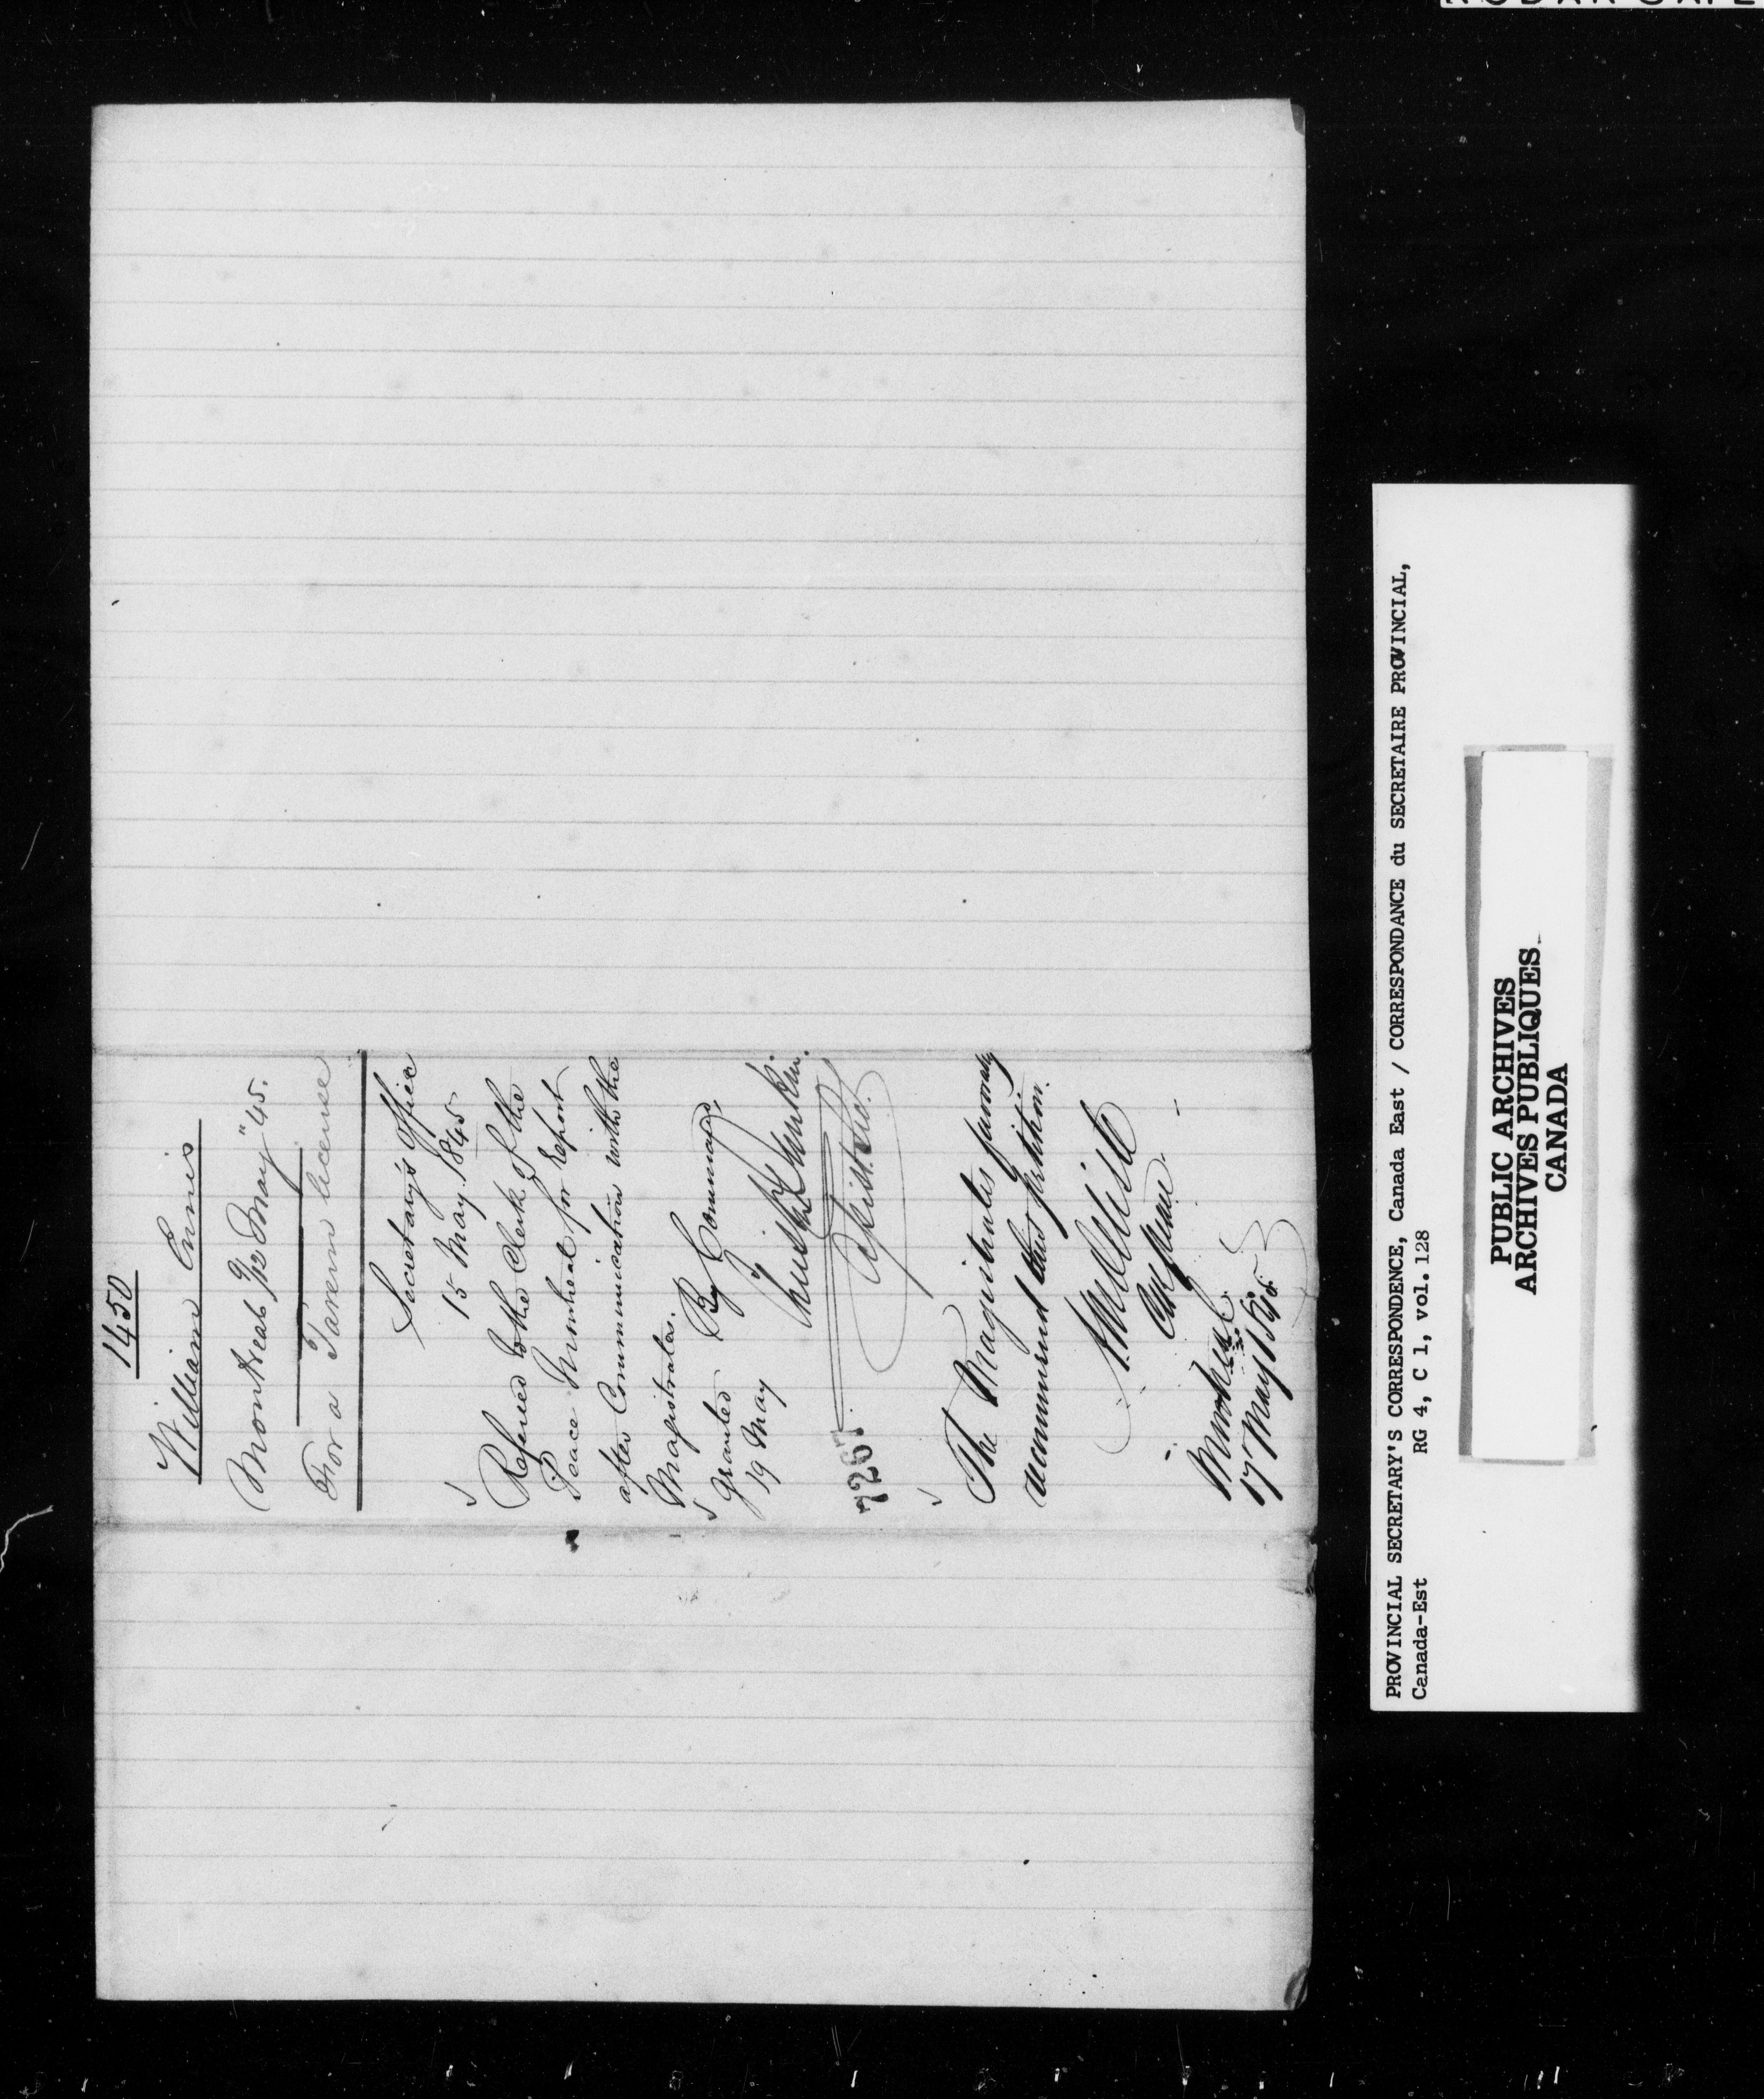 1450
William Ennis
Montreal 9/12 May "45.
For a Tavern license
Secretary's Office
15 May 1845
Refered to the Clerk of the
Peace Montreal for report
after Communication with the
Magistrates.
By Command,
Granted
19 May
Assist. Sec.
7267
The Magistrates
recommend this petition.
Montreal
17 May 1845
PROVINCIAL SECRETARY'S CORRESPONDENCE, Canada East / CORRESPONDANCE du SECRETAIRE PROVINCIAL,
Canada-Est RG 4, C 1, vol. 128
PUBLIC ARCHIVES
ARCHIVES PUBLIQUES
CANADA